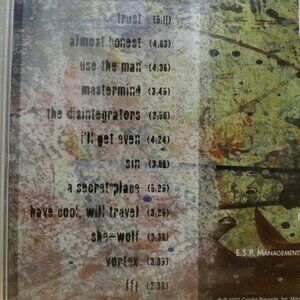 trust (5:11)
almost honest (4:03)
use the man (4:36)
mastermind (3:45)
the disintegrators (2:50)
i'll get even (4:24)
sin (3:06)
a secret place (5:25)
have cool, will travel (3:25)
she-wolf (3:38)
vortex (3:35)
fff (2:38)
E.S.P. MANAGEMENT
1997 Capitol Records, Inc.